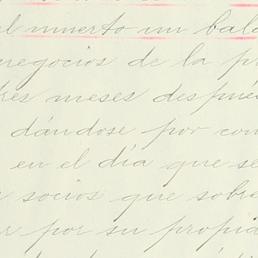 al muerto un bala
negocios de la p
res meses despué
dándose por con
en el día que se
socios que sobre
por su propi